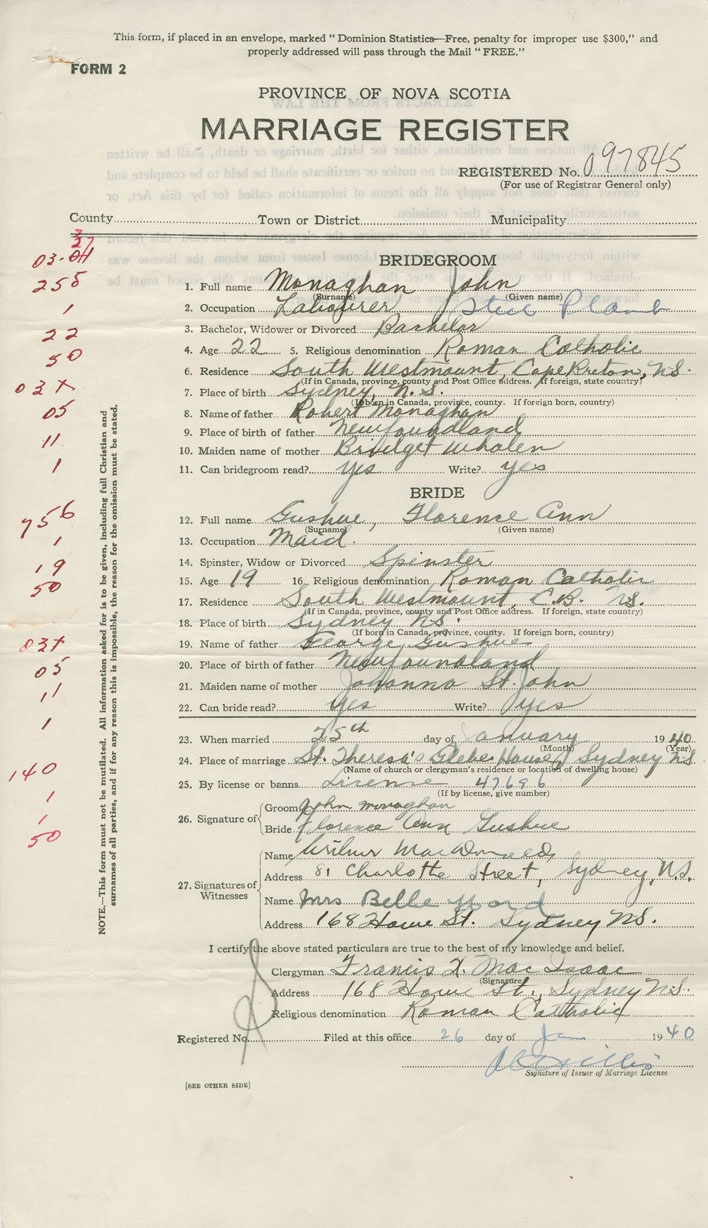 This form, if placed in an envelope, marked "Dominion Statistics—Free, penalty for improper use $300," and
properly addressed will pass through the Mail "FREE."
FORM 2
PROVINCE OF NOVA SCOTIA
MARRIAGE REGISTER
REGISTERED No. 097845
(For use of Registrar General only)
County Town or District Municipality
BRIDEGROOM
1. Full name Monaghan John
(Surname) (Given name)
2. Occupation Labourer Steel Plant
3. Bachelor, Widower or Divorced Bachelor
4. Age 22 5. Religious denomination Roman Catholic
6. Residence South Westmount, Cape Breton, N.S.
(If in Canada, province, county and Post Office address. If foreign, state country)
7. Place of birth Sydney, N.S.
(If born in Canada, province, county. If foreign born, country)
8. Name of father Robert Monaghan
9. Place of father Newfoundland
10. Maiden name of mother Bridget Whalen
11. Can bridegroom read? Yes Write? Yes
BRIDE
12. Full name Gushue, Florence Ann
(Surname) (Given name)
13. Occupation Maid.
14. Spinster, Widow or Divorced Spinster
15. Age 19 16. Religious denomination Roman Catholic
17. Residence South Westmount, C.B. N.S.
(If in Canada, province, county and Post Office address. If foreign, state country)
18. Place of birth Sydney N.S.
(If born in Canada, province, county. If foreign born, country)
19. Name of father George Gushue
20. Place of birth of father Newfoundland
21. Maiden name of mother Johanna St. John
22. Can bride read? Yes Write? Yes
23. When married 25th day of January 1940
(Month) (Year)
24. Place of marriage St. Theresa's Glebe House, Sydney N.S.
(Name of church or clergyman's residence or location of dwelling house)
25. By license or banns License 47696
(If by license, give number)
26. Signature of Groom John Monaghan
Bride Florence Ann Gushue
27. Signatures of Witnesses
Name Wilbur MacDonald,
Address 81 Charlotte Street, Sydney, N.S.
Name Mrs Belle Ward
Address 168 Howe St. Sydney N.S.
I certify the above stated particulars are true to the best of my knowledge and belief.
Clergyman Francis X. MacIsaac
(Signature)
Address 168 Howe St., Sydney N.S.
Religious denomination Roman Catholic
Registered No. Filed at this office 26 day of Jan 1940
Signature of Issuer of Marriage License
[SEE OTHER SIDE]
NOTE.—This form must not be mutilated. All information asked for is to be given, including full Christian and
surnames of all parties, and if for any reason this is impossible, the reason for the omission must be stated.
255
1
22
50
03X
05
11
1
756
1
19
50
03X
05
11
1
140
1
1
50